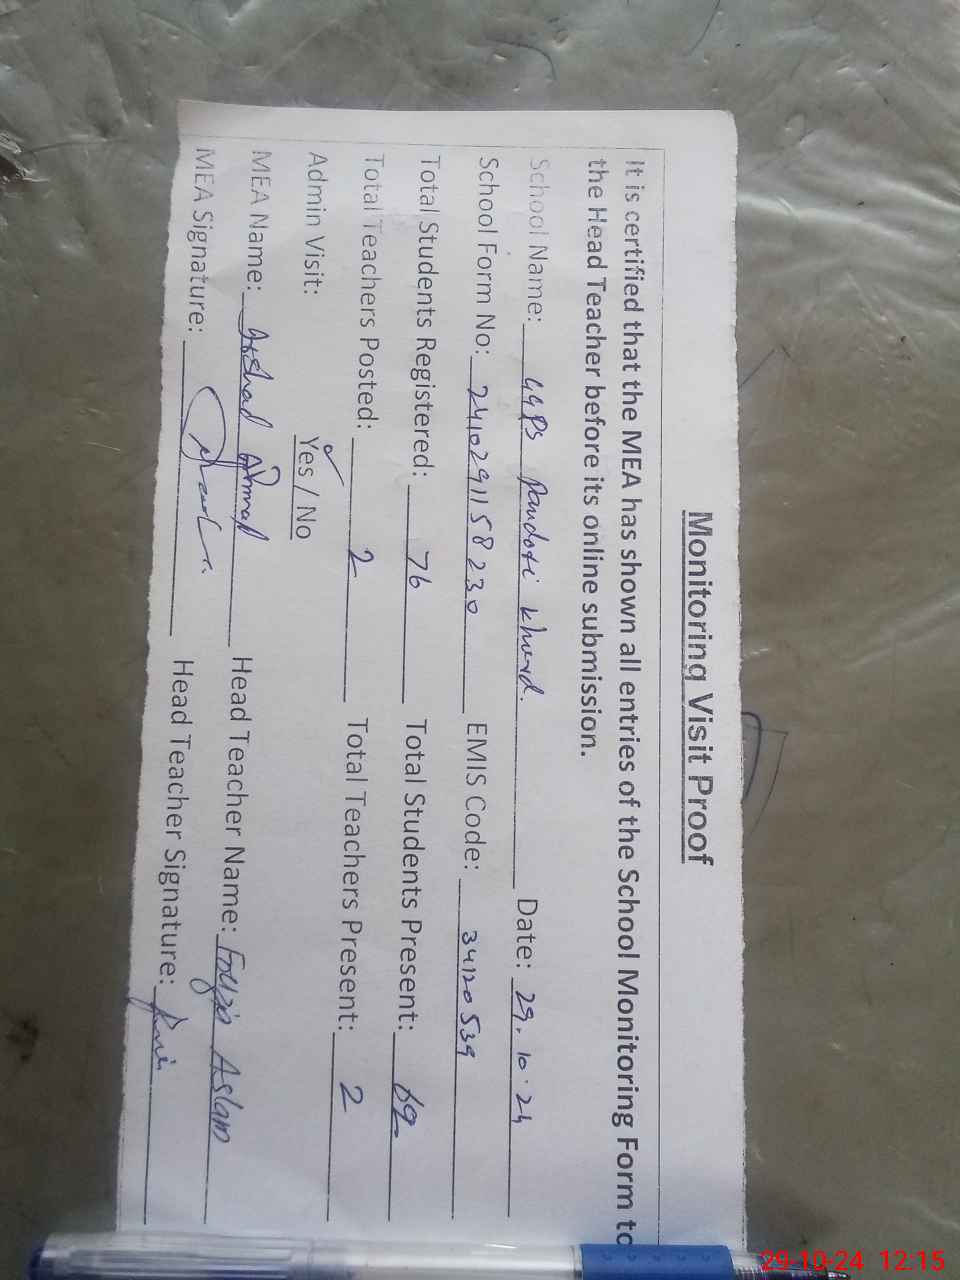 Monitoring Visit Proof
It is certified that the MEA has shown all entries of the School Monitoring Form to
the Head Teacher before its online submission.
School Name: GGPS Pandori Khurd. Date: 29.10.24
School Form No: 2410291158230 EMIS Code: 34120539
Total Students Registered: 76 Total Students Present: 69
Total Teachers Posted: 2 Total Teachers Present: 2
Admin Visit: Yes / No
MEA Name: Arshad Ahmad Head Teacher Name: Fouzia Aslam
MEA Signature: Head Teacher Signature:
29-10-24 12:15